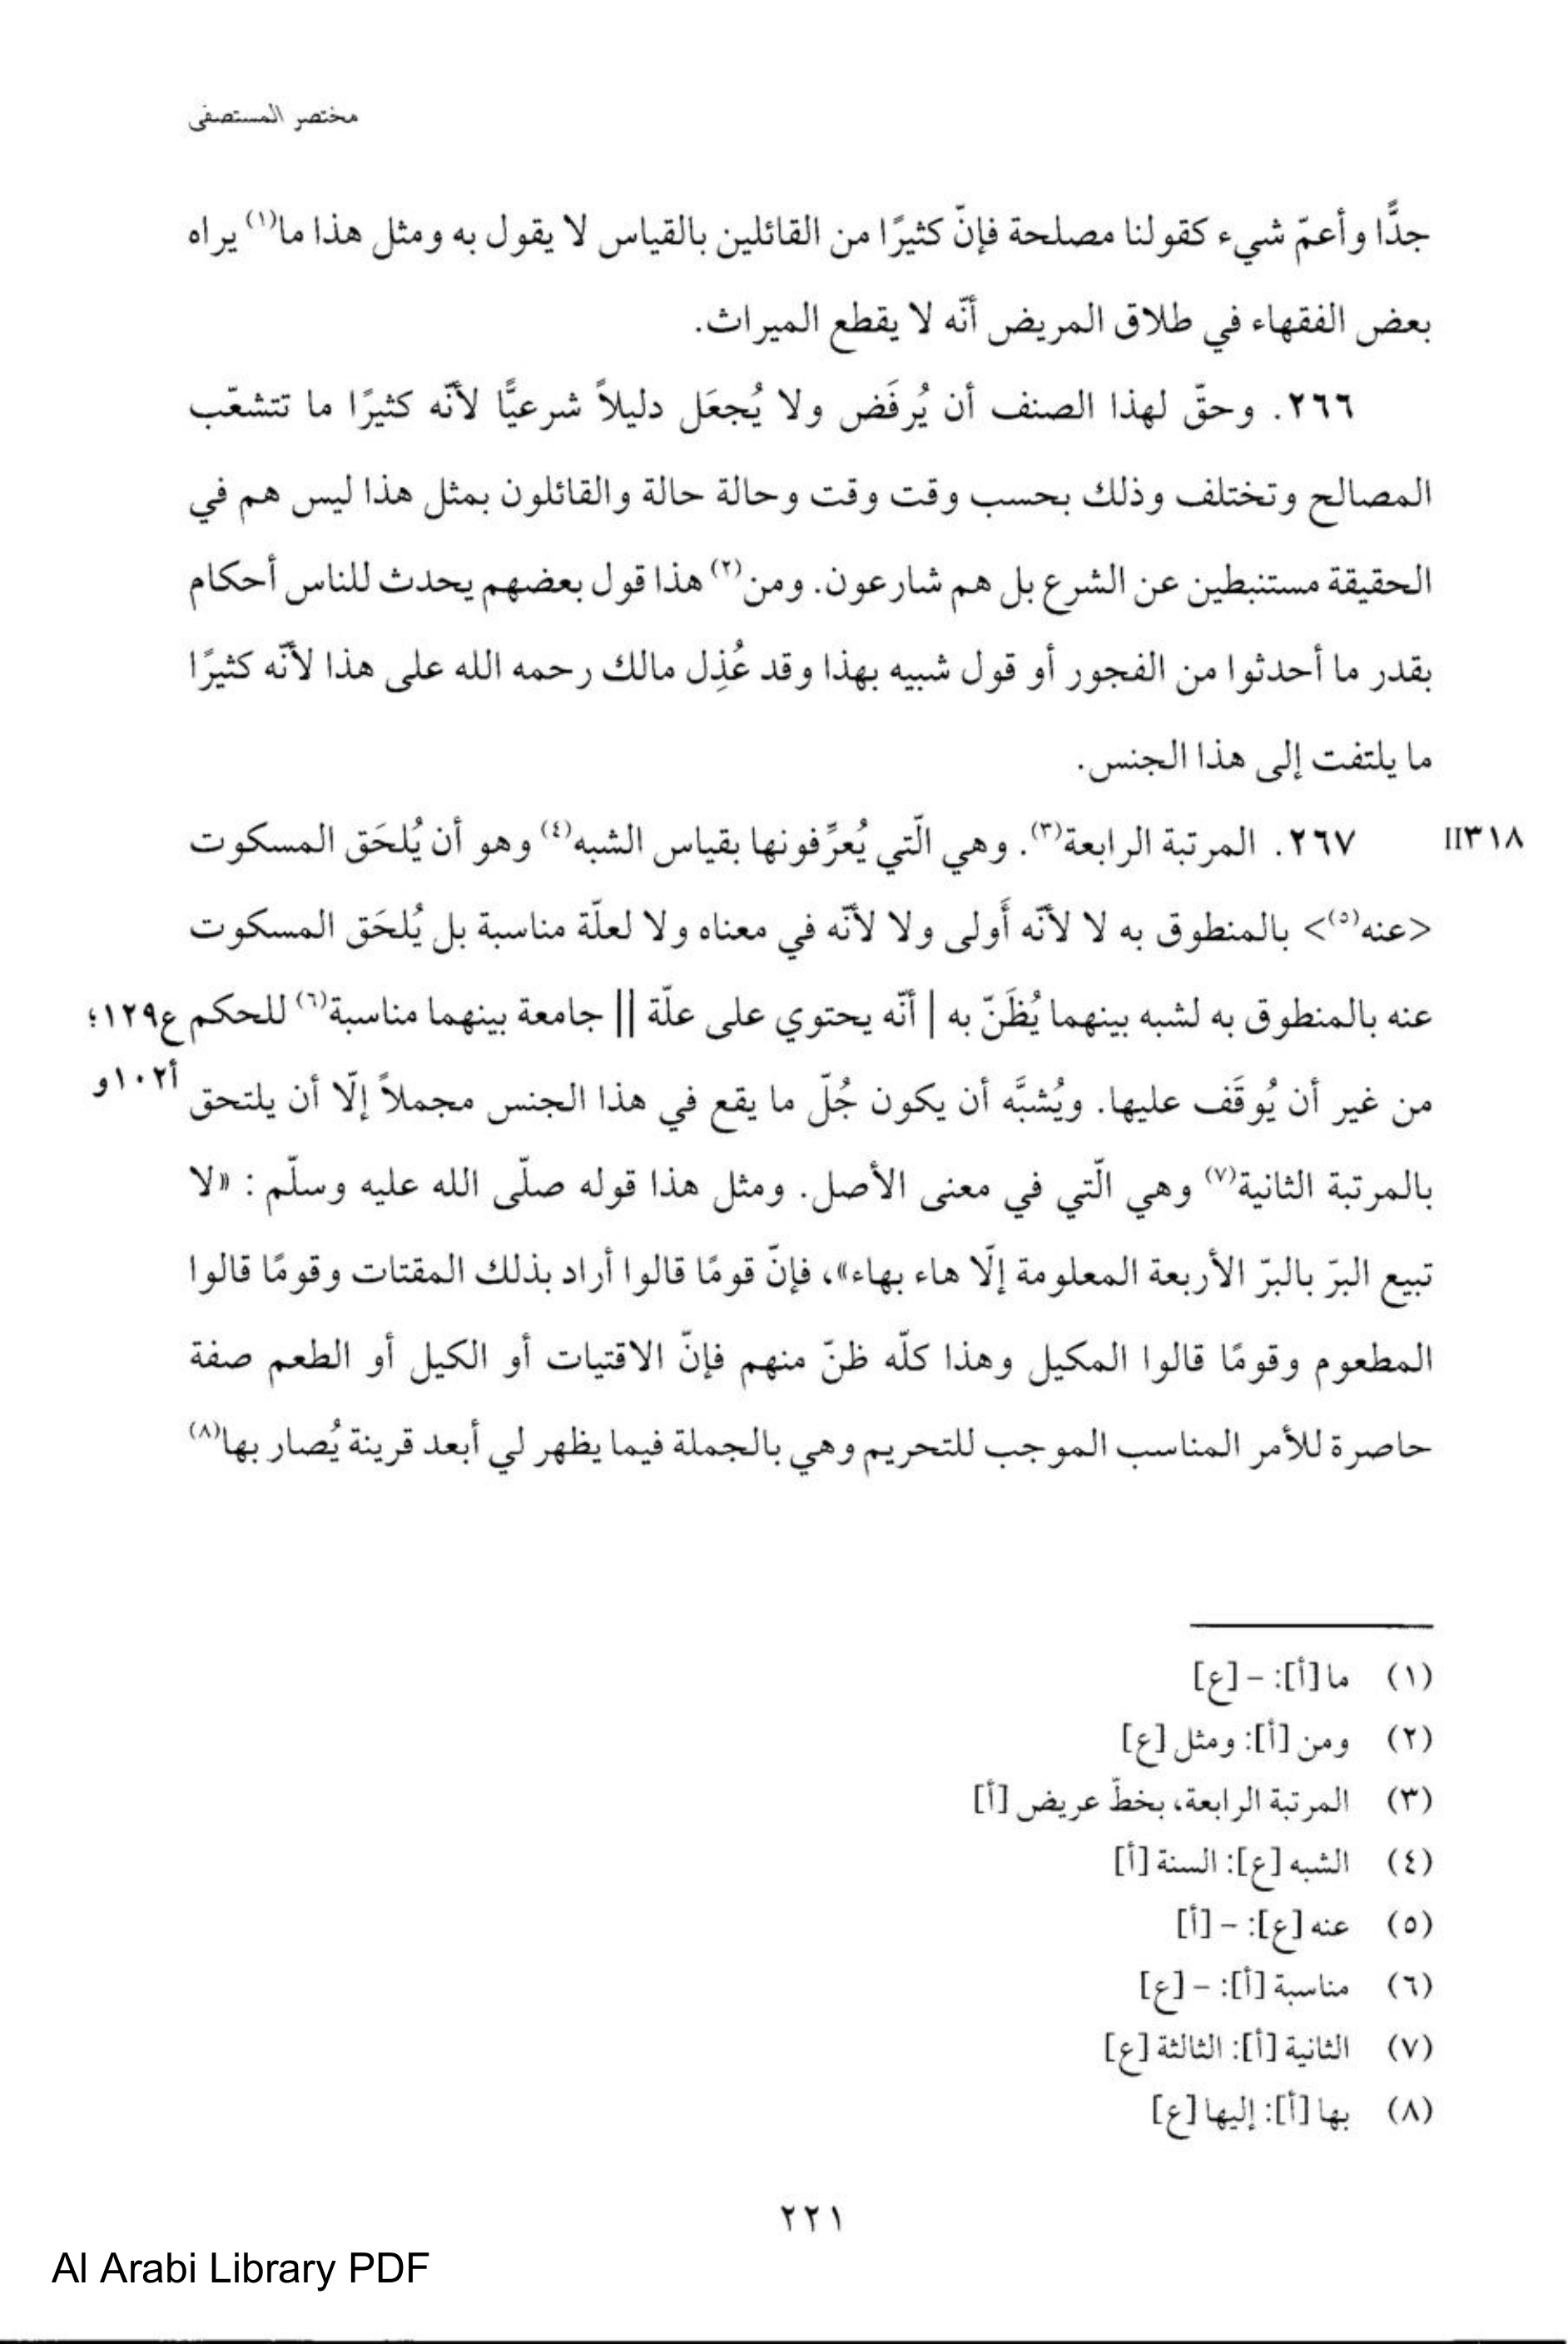 مختصر المستصفى
جدًّا وأعمّ شيء كقولنا مصلحة فإنّ كثيرًا من القائلين بالقياس لا يقول به ومثل هذا ما(١) يراه
بعض الفقهاء في طلاق المريض أنّه لا يقطع الميراث.
٢٦٦. وحقّ لهذا الصنف أن يُرفَض ولا يُجعَل دليلاً شرعيًّا لأنّه كثيرًا ما تتشعّب
المصالح وتختلف وذلك بحسب وقت وقت وحالة حالة والقائلون بمثل هذا ليس هم في
الحقيقة مستنبطين عن الشرع بل هم شارعون. ومن(٢) هذا قول بعضهم يحدث للناس أحكام
بقدر ما أحدثوا من الفجور أو قول شبيه بهذا وقد عُذِل مالك رحمه الله على هذا لأنّه كثيرًا
ما يلتفت إلى هذا الجنس.
II٣١٨ ٢٦٧. المرتبة الرابعة(٣). وهي الّتي يُعرِّفونها بقياس الشبه(٤) وهو أن يُلحَق المسكوت
<عنه(٥)> بالمنطوق به لا لأنّه أَولى ولا لأنّه في معناه ولا لعلّة مناسبة بل يُلحَق المسكوت
عنه بالمنطوق به لشبه بينهما يُظَنّ به | أنّه يحتوي على علّة || جامعة بينهما مناسبة(٦) للحكم ع١٢٩؛
من غير أن يُوقَف عليها. ويُشبَّه أن يكون جُلّ ما يقع في هذا الجنس مجملاً إلّا أن يلتحق أ١٠٢و
بالمرتبة الثانية(٧) وهي الّتي في معنى الأصل. ومثل هذا قوله صلّى الله عليه وسلّم : «لا
تبيع البرّ بالبرّ الأربعة المعلومة إلّا هاء بهاء»، فإنّ قومًا قالوا أراد بذلك المقتات وقومًا قالوا
المطعوم وقومًا قالوا المكيل وهذا كلّه ظنّ منهم فإنّ الاقتيات أو الكيل أو الطعم صفة
حاصرة للأمر المناسب الموجب للتحريم وهي بالجملة فيما يظهر لي أبعد قرينة يُصار بها(٨)
(١) ما [أ]: – [ع]
(٢) ومن [أ]: ومثل [ع]
(٣) المرتبة الرابعة، بخطّ عريض [أ]
(٤) الشبه [ع]: السنة [أ]
(٥) عنه [ع]: – [أ]
(٦) مناسبة [أ]: – [ع]
(٧) الثانية [أ]: الثالثة [ع]
(٨) بها [أ]: إليها [ع]
٢٢١
Al Arabi Library PDF